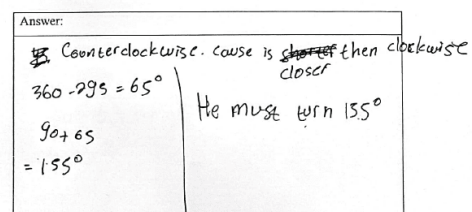 Answer:
Counterclockwise. cause is closer then clockwise
360 - 295 = 65°
90 + 65
= 155°
He must turn 155°